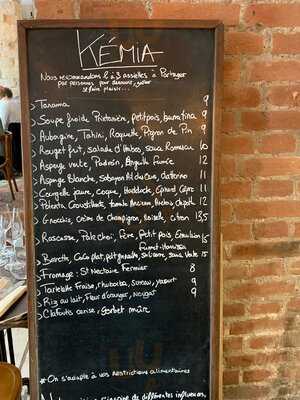 KÉMIA
Nous recommandons 2 à 3 assiettes à Partager
par personnes pour savourer, goûter
se faire plaisir...
Tarama 9
Soupe froide Printanière, petit pois, burratina 9
Aubergine, Tahini, Roquette, Pignon de Pin 9
Rouget frit, salade d'umbo, sauce Romesco 10
Asperge verte, Padrón, Anguille Fumée 12
Asperge Blanche, sabayon Ail des ours, 12
Courgette jaune, Coque, Haddock, 11
Polenta Croustillante, tomate Ancienne, chipotle 12
Gnocchis, crème de champignon, Noisette, citron 13,5
Rascasse, Pak choï, Fève, Petit pois, Emulsion 15
Fumet-Harissa
Bavette, Coco plat, sauce Voile 15
Fromage : St Nectaire Fermier 8
Tartelette Fraise, rhubarbe, yaourt 9
Riz au lait, Fleur d'oranger, Nougat 9
Clafoutis cerise, sorbet mûre
# On s'adapte à vos restrictions alimentaires
de différentes influences,